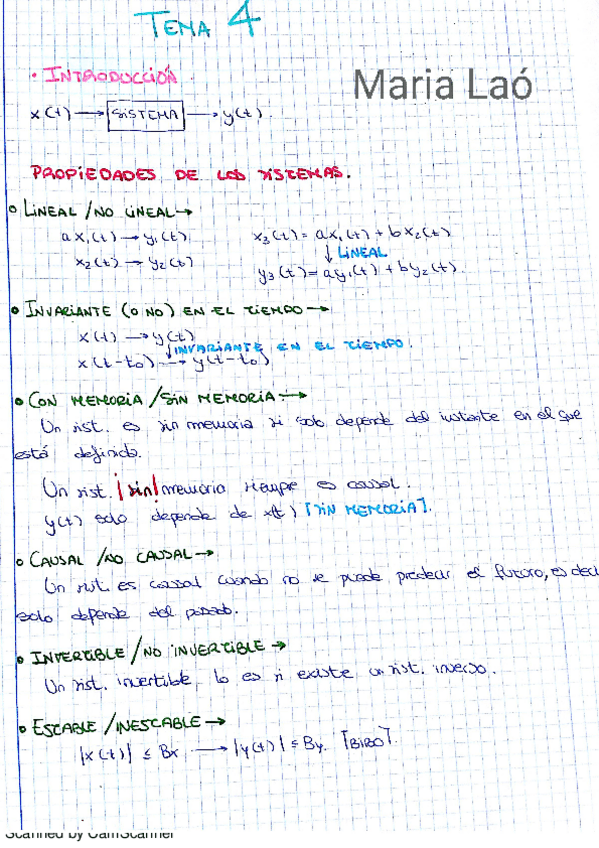 TEMA 4
• INTRODUCCIÓN
Maria Laó
x(t) → SISTEMA → y(t)
PROPIEDADES DE LOS SISTEMAS.
o LINEAL / NO LINEAL →
ax₁(t) → y₁(t) x₃(t) = ax₁(t) + bx₂(t)
↓ LINEAL
x₂(t) → y₂(t) y₃(t) = ay₁(t) + by₂(t)
o INVARIANTE (O NO) EN EL TIEMPO →
x(t) → y(t)
↓ INVARIANTE EN EL TIEMPO.
x(t-t₀) → y(t-t₀)
o CON MEMORIA / SIN MEMORIA →
Un sist. es sin memoria si solo depende del instante en el que
está definido.
Un sist. |sin| memoria siempre es causal.
y(t) solo depende de x(t) [SIN MEMORIA].
o CAUSAL / NO CAUSAL →
Un sist. es causal cuando no se puede predecir el futuro, es deci
solo depende del pasado.
o INVERTIBLE / NO INVERTIBLE →
Un sist. invertible, lo es si existe un sist. inverso.
o ESTABLE / INESTABLE →
|x(t)| ≤ Bx → |y(t)| ≤ By. [BIBO].
Scanned by CamScanner